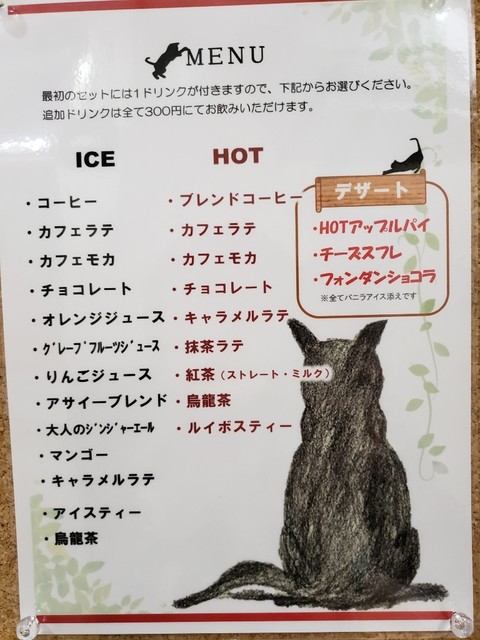 MENU
最初のセットには1ドリンクが付きますので、下記からお選びください。
追加ドリンクは全て300円にてお飲みいただけます。
ICE
・コーヒー
・カフェラテ
・カフェモカ
・チョコレート
・オレンジジュース
・グレープフルーツジュース
・りんごジュース
・アサイーブレンド
・大人のジンジャーエール
・マンゴー
・キャラメルラテ
・アイスティー
・烏龍茶
HOT
・ブレンドコーヒー
・カフェラテ
・カフェモカ
・チョコレート
・キャラメルラテ
・抹茶ラテ
・紅茶（ストレート・ミルク）
・烏龍茶
・ルイボスティー
デザート
・HOTアップルパイ
・チーズスフレ
・フォンダンショコラ
※全てバニラアイス添えです